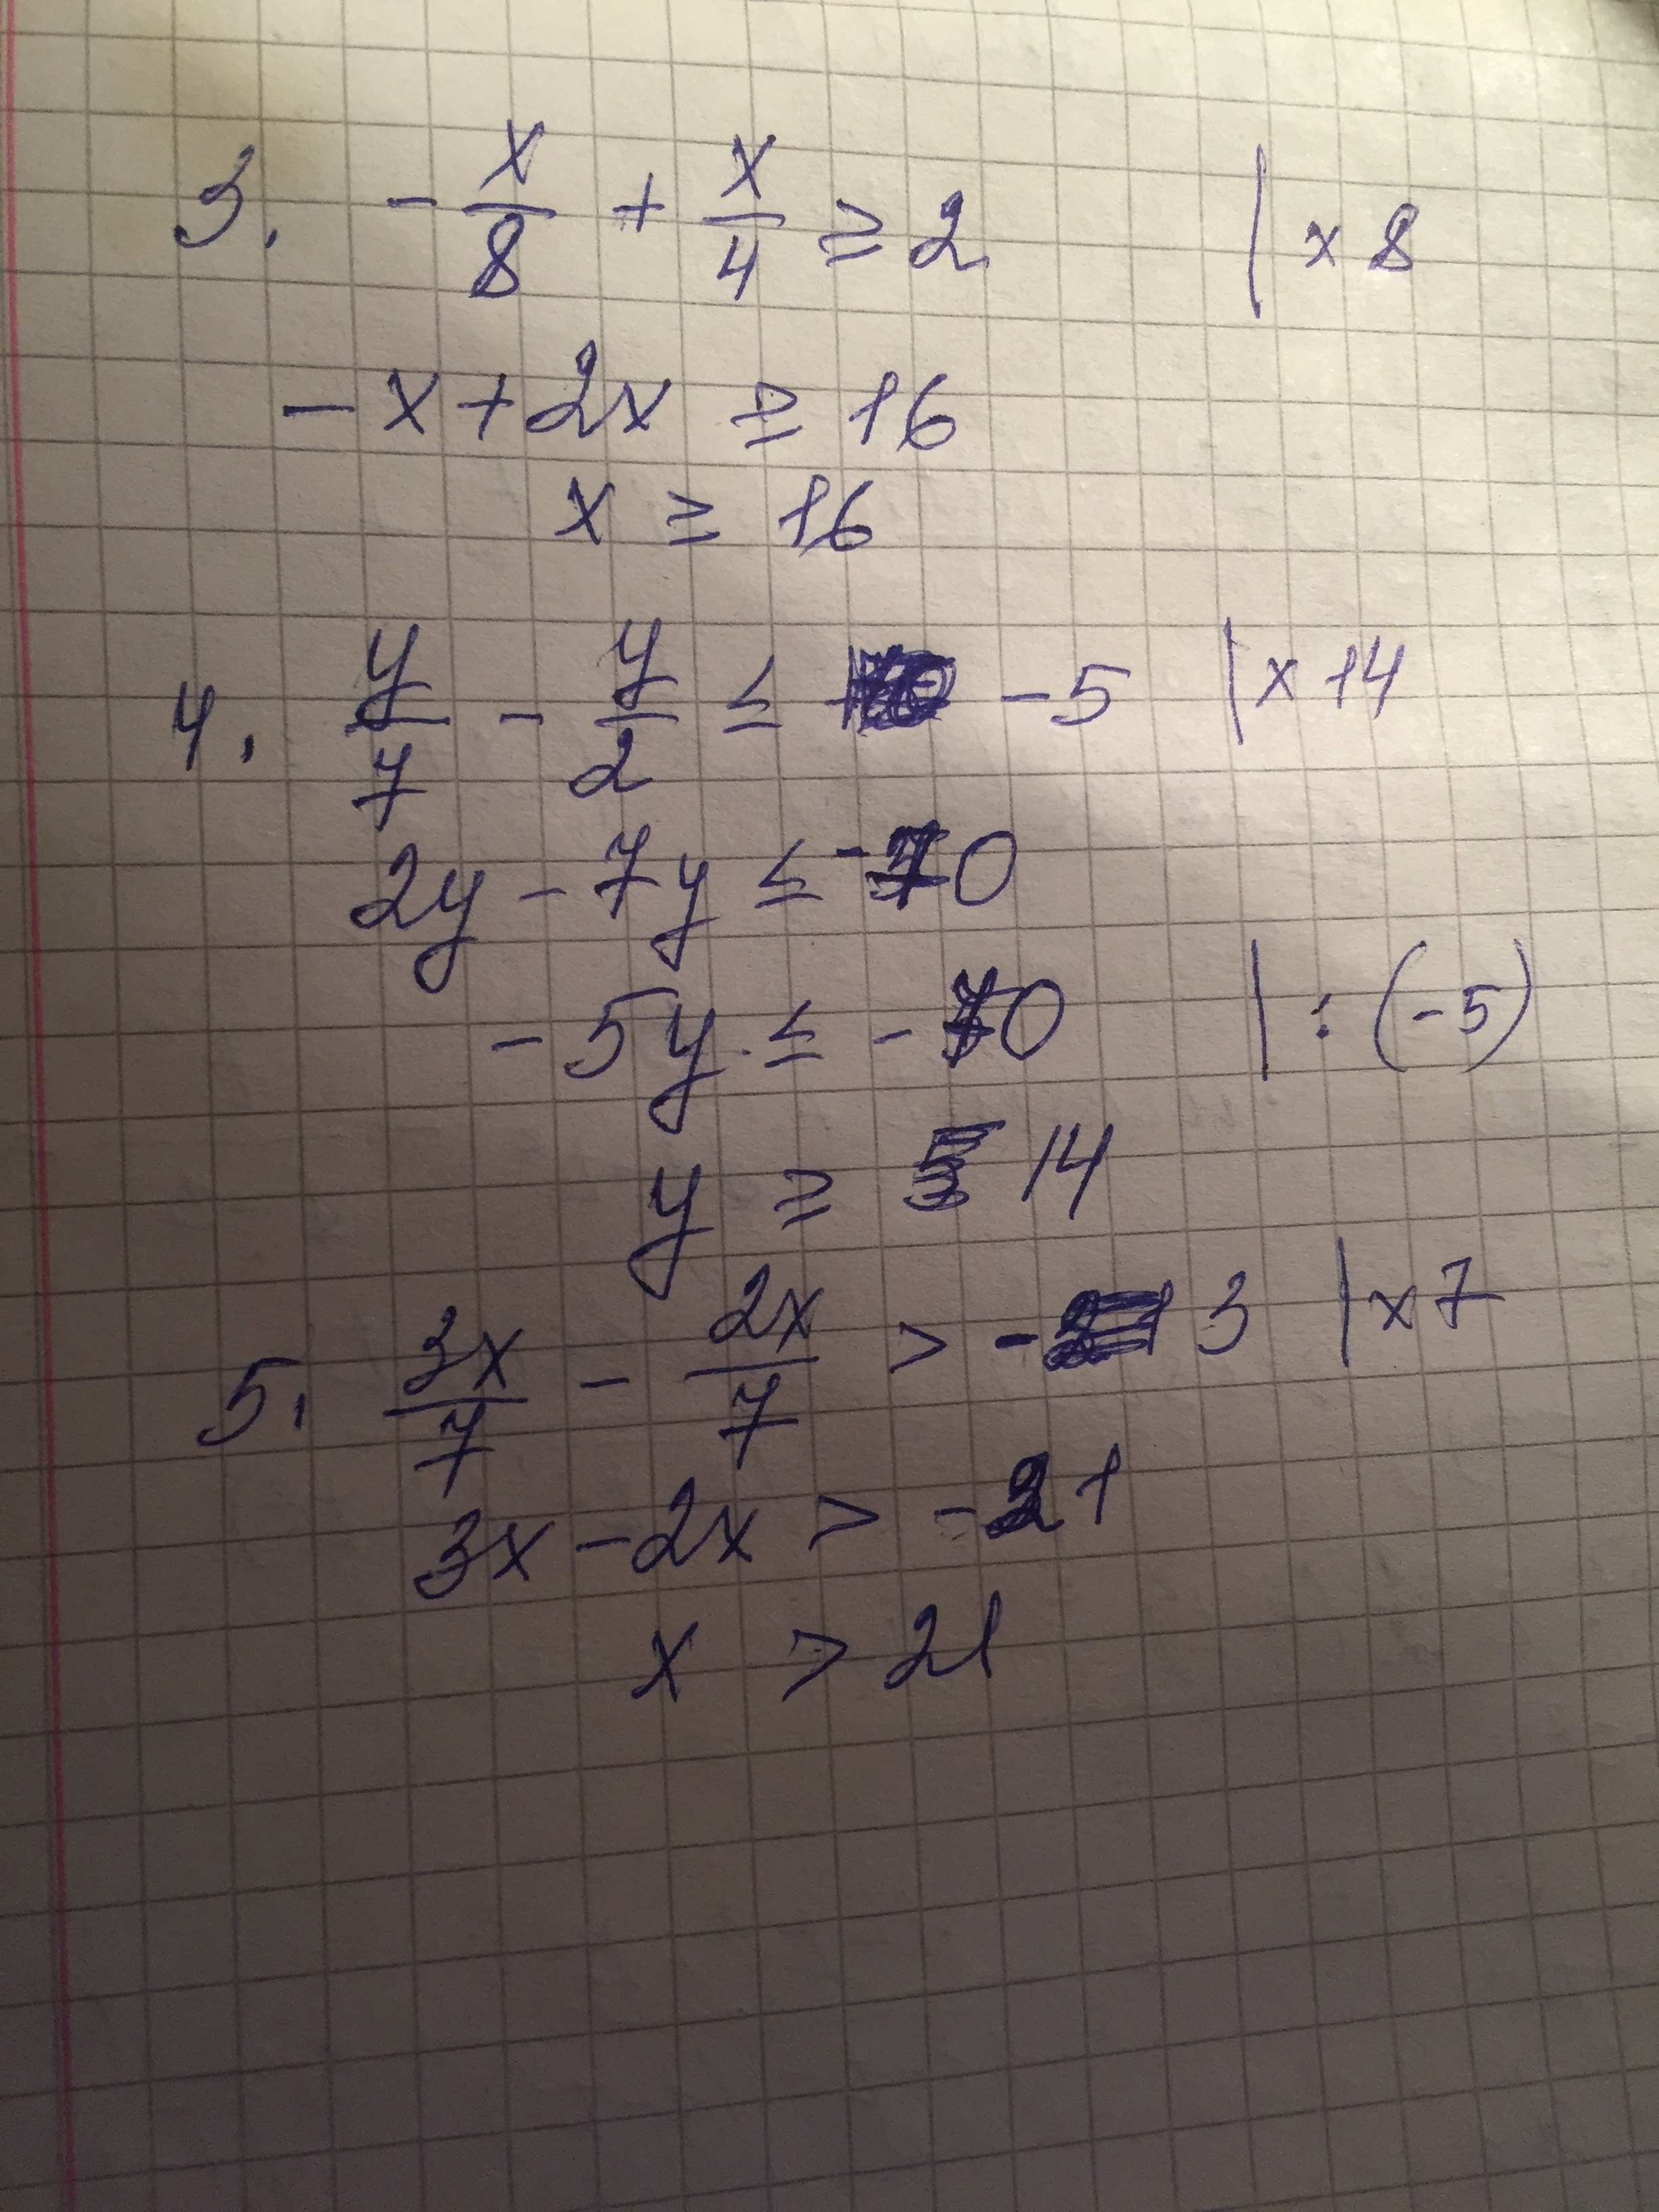 3. -x/8 + x/4 ≥ 2 | x 8
-x + 2x ≥ 16
x ≥ 16
4. y/7 - y/2 ≤ -5 | x 14
2y - 7y ≤ -70
-5y ≤ -70 | : (-5)
y ≥ 14
5. 3x/7 - 2x/7 > - 3 | x 7
3x - 2x > -21
x > 21